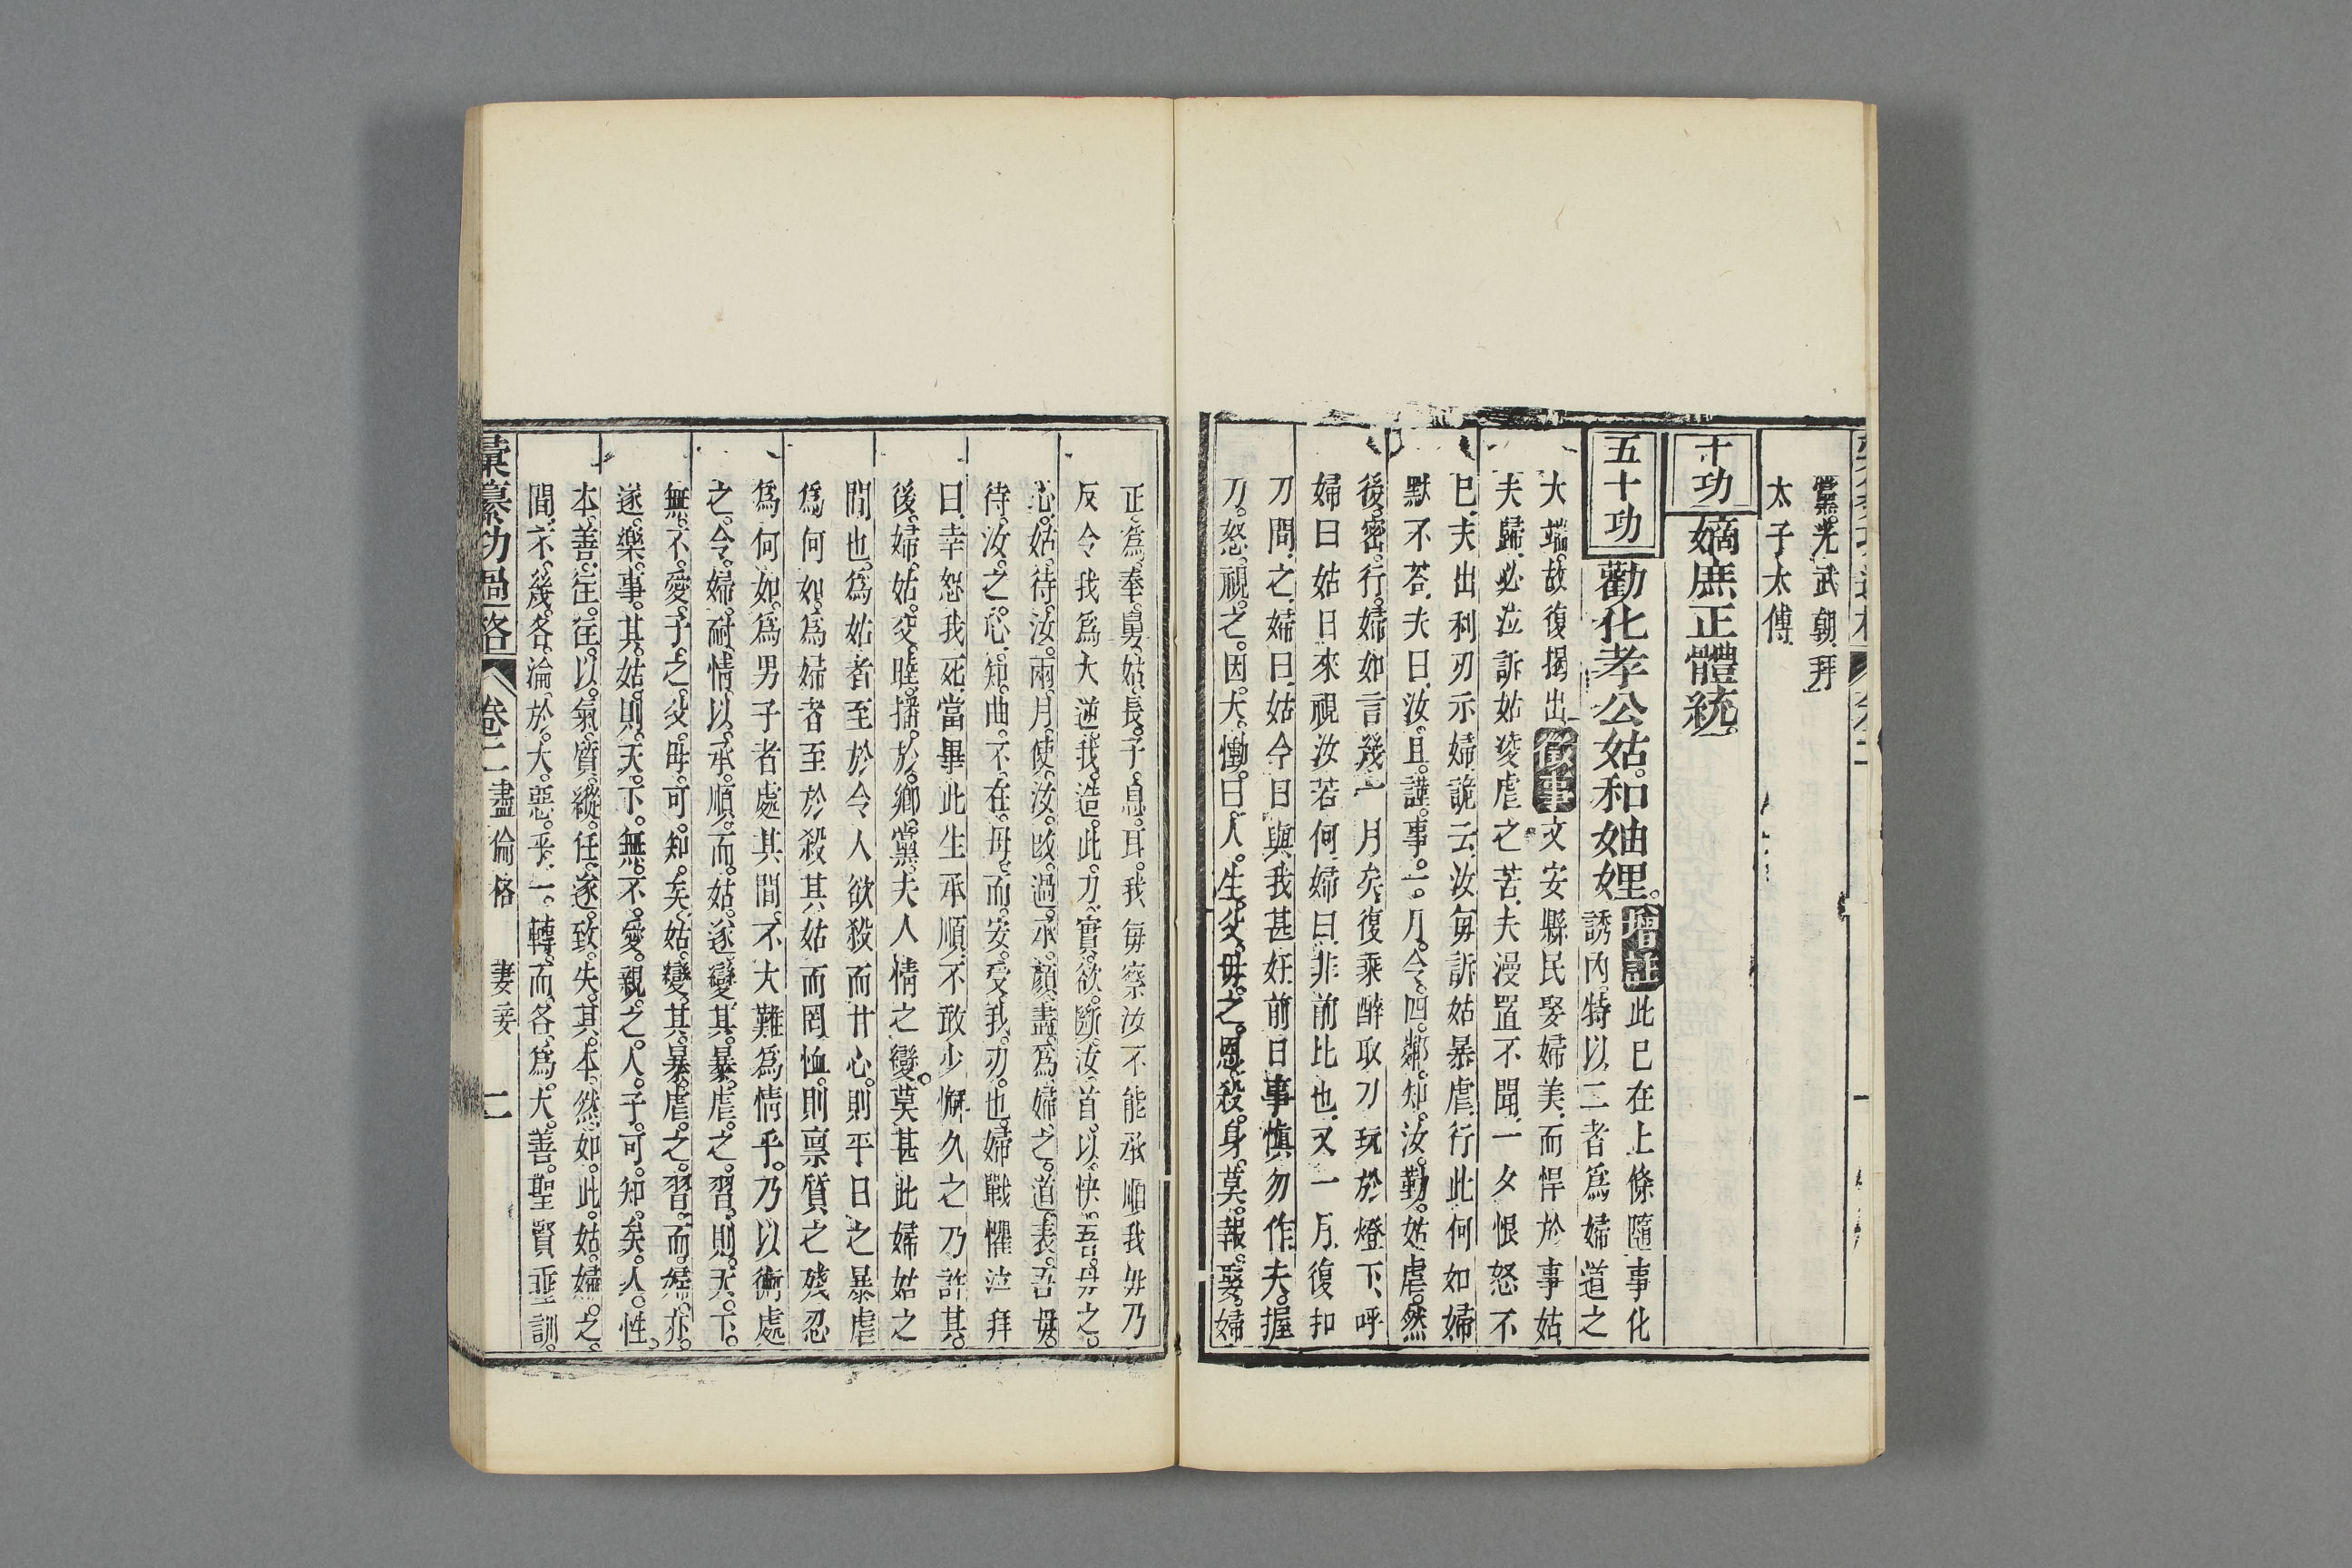 黨光武朝拜
太子太傅
十功
嫡庶正體統
五十功
勸化孝公姑和妯娌
增註
此已在上條隨事化
誘內特以二者爲婦道之
大端故復揭出
徵事
文安縣民娶婦美而悍於事姑
夫歸必泣訴姑凌虐之苦夫漫置不聞一夕恨怒不
已夫出利刃示婦詭云汝每訴姑暴虐行此何如婦
默不荅夫曰汝且謹事一月令四鄰知汝勤姑虐然
後密行婦如言幾一月矣復乘醉取刀玩於燈下呼
婦曰姑日來視汝若何婦曰非前比也又一月復扣
刀問之婦曰姑今日與我甚好前日事慎勿作夫握
刀怒視之因大慟曰人生父母之恩殺身莫報娶婦
正爲奉舅姑長子息耳我每察汝不能承順我母乃
反令我爲大逆我造此刀實欲斷汝首以快吾母之
心姑待汝兩月使汝改過承顏盡爲婦之道表吾母
待汝之心知曲不在母而安受我刃也婦戰懼泣拜
曰幸恕我死當畢此生承順不敢少懈久之乃許其
後婦姑交睦播於鄉黨夫人情之變莫甚此婦姑之
間也爲姑者至於令人欲殺而甘心則平日之暴虐
爲何如爲婦者至於殺其姑而罔恤則禀質之殘忍
爲何如爲男子者處其間不大難爲情乎乃以術處
之令婦耐情以承順而姑遂變其暴虐之習則天下
無不愛子之父母可知矣姑變其暴虐之習而婦亦
遂樂事其姑則天下無不愛親之人子可知矣人性
本善往往以氣質縱任遂致失其本然如此姑婦之
間不幾各淪於大惡乎一轉而各爲大善聖賢垂訓
彙纂功過格 卷二 盡倫格 妻妾 二